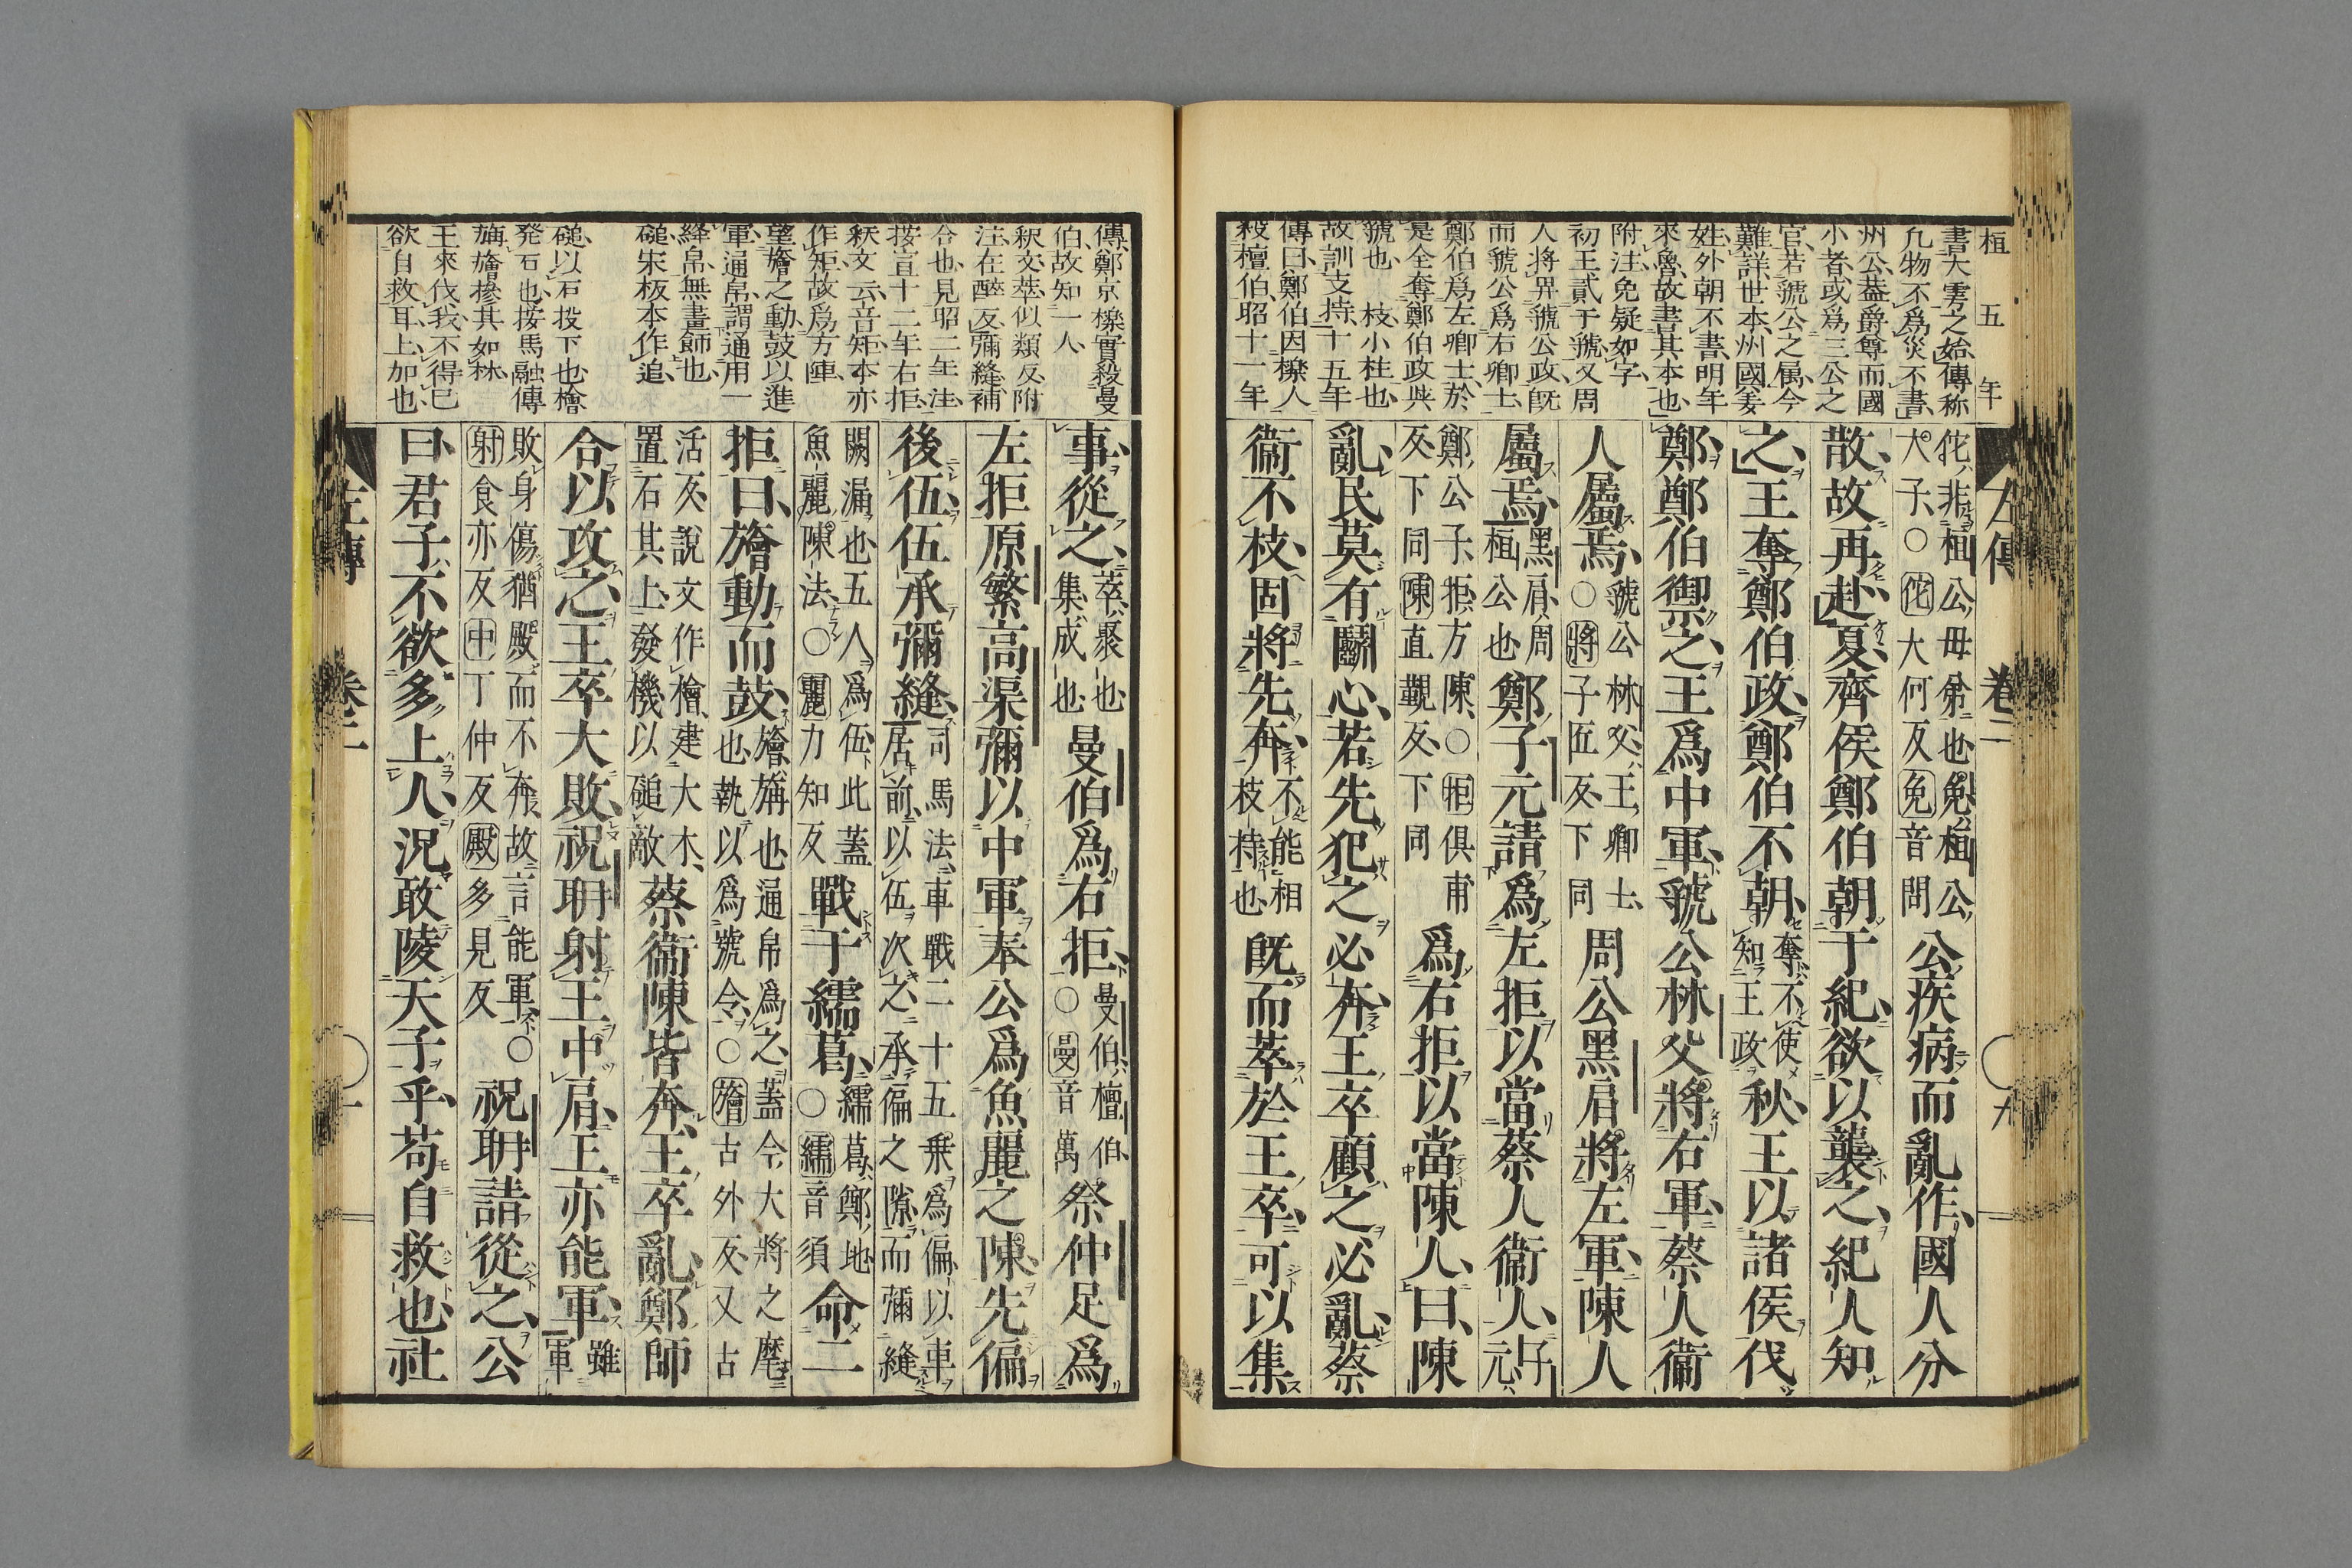 桓 五年
左傳 卷二 九
書大雩之始傳称
凡物不爲災不書
州公葢爵尊而國
小者或爲三公之
官若虢公之属今
難詳世本州國姜
姓外朝不書明年
來魯故書其本也
附注免疑如字
初王貳于虢又周
人將畀虢公政既
而虢公爲右卿士
鄭伯爲左卿士於
是全奪鄭伯政與
虢也　枝小柱也
故訓支持十五年
傳曰鄭伯因櫟人
殺檀伯昭十一年
佗非桓公母弟也免桓公大子○佗大何反免音問公疾病而亂作國人分
散故再赴夏齊侯鄭伯朝于紀欲以襲之紀人知
之王奪鄭伯政鄭伯不朝奪不使知王政秋王以諸侯伐
鄭鄭伯禦之王爲中軍虢公林父將右軍蔡人衞
人屬焉虢公林父王卿士○將子匠反下同周公黑肩將左軍陳人
屬焉黑肩周桓公也鄭子元請爲左拒以當蔡人衞人子元
鄭公子拒方陳○拒俱甫反下同陳直觀反下同爲右拒以當陳人曰陳
亂民莫有鬭心若先犯之必奔王卒顧之必亂蔡
衞不枝固將先奔不能相枝持也旣而萃於王卒可以集
傳鄭京櫟實殺曼
伯故知一人
釈文萃似類反附
注在醉反彌縫補
合也見昭二年注
按宣十二年右拒
釈文云音矩本亦
作矩故爲方陣
望旝之動鼓以進
軍通帛謂通用一
絳帛無畫飾也
磓宋板本作追
磓以石投下也檜
発石也按馬融傳
旃旝摻其如林
王來伐我不得已
欲自救耳上加也
事從之萃聚也集成也曼伯爲右拒曼伯檀伯○曼音萬祭仲足爲
左拒原繁高渠彌以中軍奉公爲魚麗之陳先偏
後伍伍承彌縫司馬法車戰二十五乗爲偏以車居前以伍次之承偏之隙而彌縫
闕漏也五人爲伍此蓋魚麗陳法○麗力知反戰于繻葛繻葛鄭地○繻音須命二
拒曰旝動而鼓旝旃也通帛爲之蓋今大將之麾也執以爲號令○旝古外反又古
活反說文作檜建大木置石其上發機以磓敵蔡衞陳皆奔王卒亂鄭師
合以攻之王卒大敗祝聃射王中肩王亦能軍雖軍
敗身傷猶殿而不奔故言能軍○射食亦反中丁仲反殿多見反祝聃請從之公
曰君子不欲多上人況敢陵天子乎苟自救也社
左傳 卷二